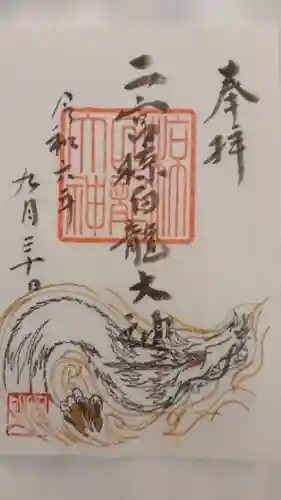 奉拝
二宮孫白龍大神
令和六年
九月三十日